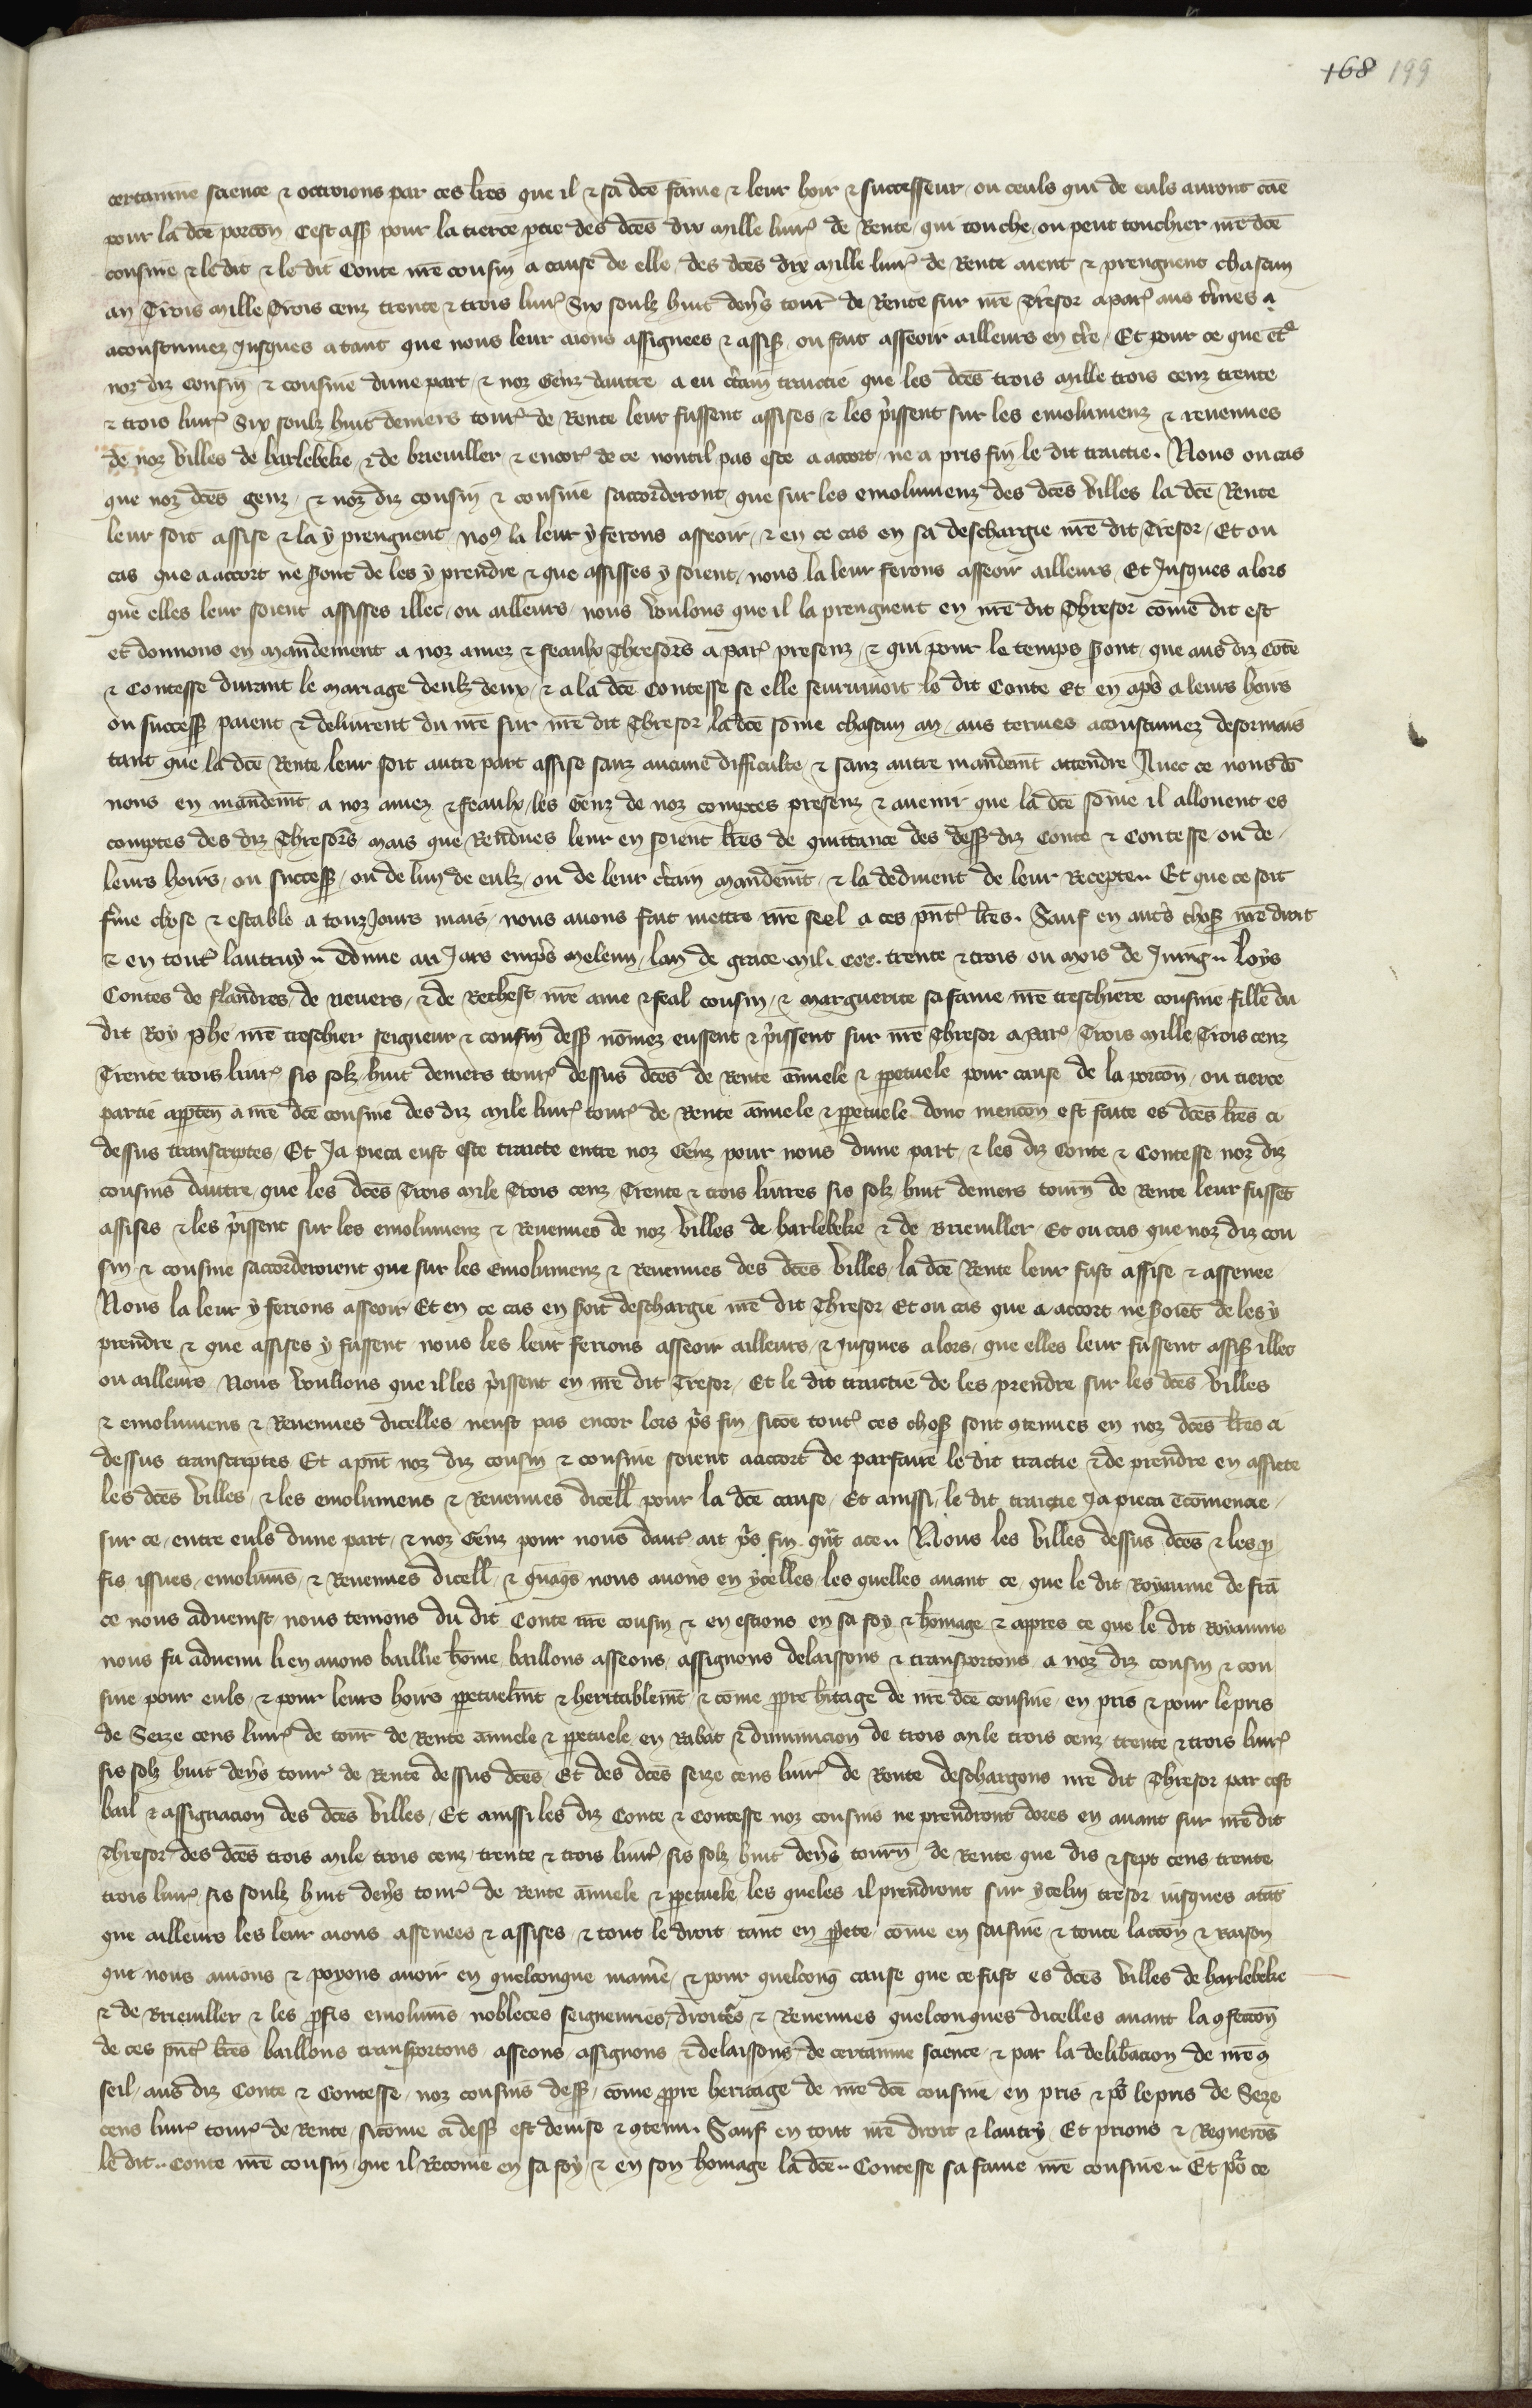 168 199
certainne science & octroions par ces lres que il & sa dce fame & leur hoir & successeur, ou ceuls qui de euls auront cae
pour la dce porcon, Cest ass pour la tierce ptie des dces dix mille liur de Rente, qui touche ou peut touchier nre dce
cousine & le dit & le dit Conte nre cousin a cause de elle, des dces dix mille liur de Rente aient & prengnent chascun
an Trois mille Trois cenz trente & trois liur Six soulz huit dens tour de Rente sur nre Tresor a par aus tmes a
acoustumez Jusques a tant que nous leur aions assignees & assis, ou fait asseoir ailleurs en tre, Et pour ce que ent
noz diz cousin & cousine dune part, & noz Genz dautre a eu ctain traictie que les dces trois mille trois cenz trente
& trois liur Six soulz huit deniers tour de Rente leur fussent assises, & les pissent sur les emolumenz & reuenues
de noz villes de harlebeke & de brieuiller, & encor de ce nont il pas este a accort, ne a pris fin le dit traictie. Nous ou cas
que noz dces genz, & noz diz cousin & cousine saccorderont, que sur les emolumenz des dces villes la dce Rente
leur soit assise & la y prengnent, no9 la leur y ferons asseoir, & en ce cas en sa deschargie nre dit Tresor, Et ou
cas que a accort ne sont de les y prendre & que assisses y soient, nous la leur ferons asseoir ailleurs, Et Jusques alors
que elles leur soient assisses illec, ou ailleurs, nous voulons que il la prengnent en nre dit Thresor come dit est
et donnons en mandement a noz amez & feaulx Thresors a par presenz, & qui pour le temps sont, que aus diz Cote
& Contesse durant le mariage deulz deux, & a la dce Contesse se elle seuruiuoit le dit Conte Et en aps a leurs hoirs
ou success paient & deliurent du nre sur nre dit Thresor la dce some chascun an, aus termes acoustumez desormais
tant que la dce Rente leur soit autre part assise sanz aucune difficulte & sanz autre mandemt attendre Auec ce nous do
nons en mandemt a noz amez & feaulx, les Genz de noz comptes presenz & auenir que la dce some il allouent es
comptes des diz Thresors mais que Rendues leur en soient lres de quittance des dess diz Conte & Contesse, ou de
leurs hoirs, ou success, ou de lun de eulz, ou de leur ctain mandemt, & la deduient de leur Recepte. Et que ce soit
fme chose & estable a touz Jours mais, nous auons fait mettre nre seel a ces pnt lres. Sauf en auts chos nre droit
& en tout lautruy. Donne au Jars emps meleun, lan de grace mil. ccc. trente & trois, ou mois de Juing. loys
Contes de flandres, de neuers, & de Rethest nre ame & feal cousin, & marguerite sa fame nre treschiere cousine fille du
dit Roy phe nre treschier seigneur & cousin dess nomez eussent & pissent sur nre Thresor a par, Trois mille Trois cenz
Trente trois liur sis solz huit deniers tour dessus dces de Rente annuele & ppetuele pour cause de la porcon, ou tierce
partie apptena a nre dce cousine des diz mile liur tour de Rente annuele & ppetuele donc mencon est faite es dces lres ci
dessus transcriptes, Et Ja pieca eust este traicte entre noz Genz pour nous dune part, & les diz Conte & Contesse noz diz
cousins dautre, que les dces Trois mile Trois cenz Trente & trois liures sis solz huit deniers tourn de Rente leur fusset
assises & les pissent sur les emolumenz & Reuenues de noz villes de harlebeke & de Brieuiller Et ou cas que noz diz cou
sin & cousine saccorderoient que sur les Emolumenz & Reuenues des dces villes, la dce Rente leur fust assise & assenee
Nous la leur y ferions asseoir Et en ce cas en soit deschargie nre dit Thresor, Et ou cas que a accort ne soiet de les y
prendre & que assises y fussent nous les leur ferions asseoir ailleurs, & Jusques alors, que elles leur fussent assis illec
ou ailleurs Nous voulions que il les pissent en nre dit Tresor, Et le dit traictie de les prendre sur les dces villes
& emolumens & Reuenues dicelles neust pas encor lors ps fin, sicoe tout ces chos sont 9tenues en noz dces lres ci
dessus transcriptes Et apnt noz diz cousin & cousine soient a accort de parfaire le dit traictie & de prendre en assiete
les dces villes, & les emolumens & Reuenues dicell pour la dce cause, Et aussi le dit traictie Ja pieca Ecomencie
sur ce, entre euls dune part, & noz Genz pour nous daut ait ps fin qut a ce. Nous les villes dessus dces & les p
fis issues, emolums, & Reuenues dicell, & qnqs nous auons en ycelles, les quelles auant ce, que le dit Royaume de fra
ce nous aduenist, nous tenions du dit Conte nre cousin & en estions en sa foy & homage & appres ce que le dit Royaume
nous fu aduenu li en auons baillie home, baillons asseons, assignons delaissons & transportons a noz diz cousin & cou
sine pour euls, & pour leurs hoirs ppetuelmt & heritablemt & come ppre hitage de nre dce cousine, en pris & pour le pris
de Seize cens liur de tour de Rente annuele & ppetuele, en Rabat & diminucion de trois mile trois cenz, trente & trois liur
sis solz huit dens tour de Rente dessus dces, Et des dces seize cens liur de Rente deschargons nre dit Thresor par cest
bail & assignacion des dces villes, Et aussi les diz Conte & Contesse noz cousins ne prendront dores en auant sur nre dit
Thresor des dces trois mile trois cenz, trente & trois liur sis solz huit dens tourn de Rente que dis & sept cens trente
trois liur sis soulz huit dens tour de Rente annuele & ppetuele, les queles il prendront sur ycelui tresor iusques atat
que ailleurs les leur aions assenees & assises & tout le droit tant en ppete come en saisine & toute laccon & Raison
que nous auions & poyons auoir en quelconque manie, & pour quelconq cause que ce fust es dces villes de harlebeke
& de Brieuiller & les pfis emolums nobleces seigneuries, droites & Reuenues quelconques dicelles auant la 9feccon
de ces pnt lres baillons transportons asseons assignons & delaissons de certainne science & par la delibacion de nre 9
seil, aus diz Conte & Contesse, noz cousins dess, come ppre heritage de nre dce cousine, en pris & po le pris de Seze
cens liur tour de Rente, sicome ci dess est deuise & 9tenu. Sauf en tout nre droit & lautry, Et prions & Requerons
le dit. Conte nre cousin que il Recoiue en sa foy & en son homage la dce. Contesse sa fame nre cousine. Et po ce